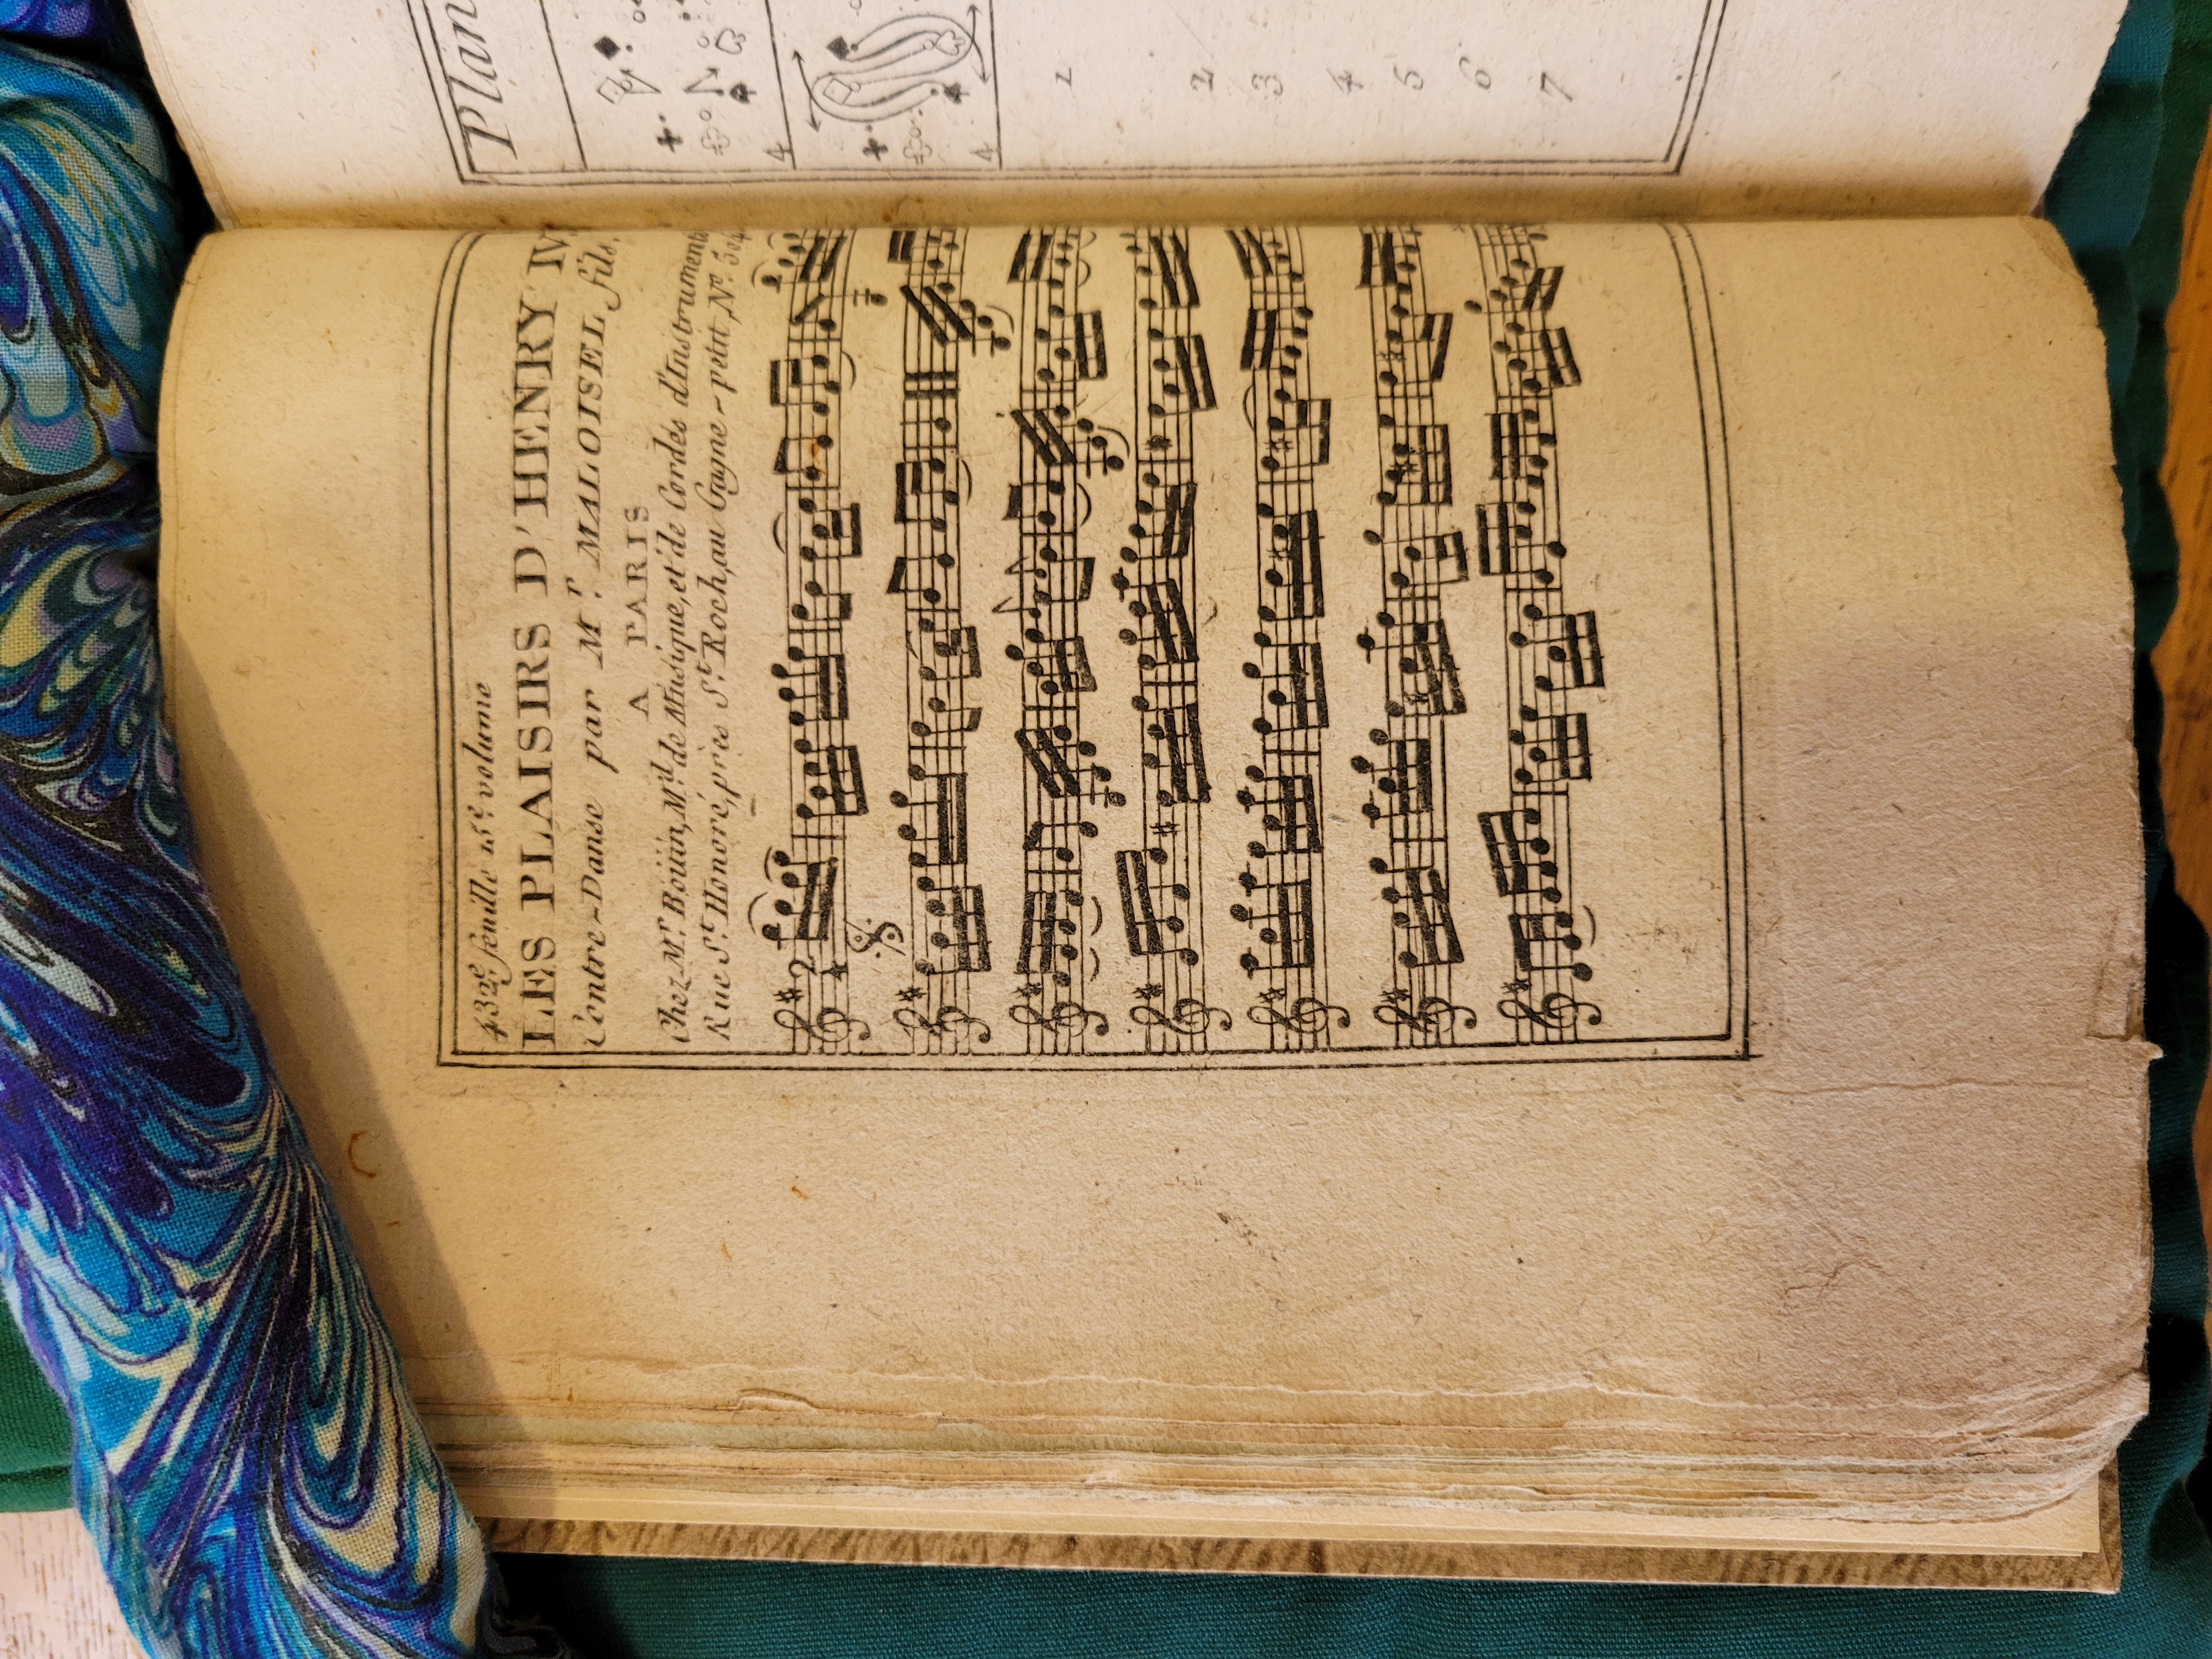 432e feuille 15e volume
LES PLAISIRS D'HENRY IV,
Contre-Danse par Mr. MALOISEL fils,
A PARIS
Chez Mr. Boüin, Md. de Musique, et de Cordes d'Instruments
Rue St. Honoré, près St. Roch, au Gagne-petit, No. 504
2
4
Plan
4
4
1
2
3
4
5
6
7